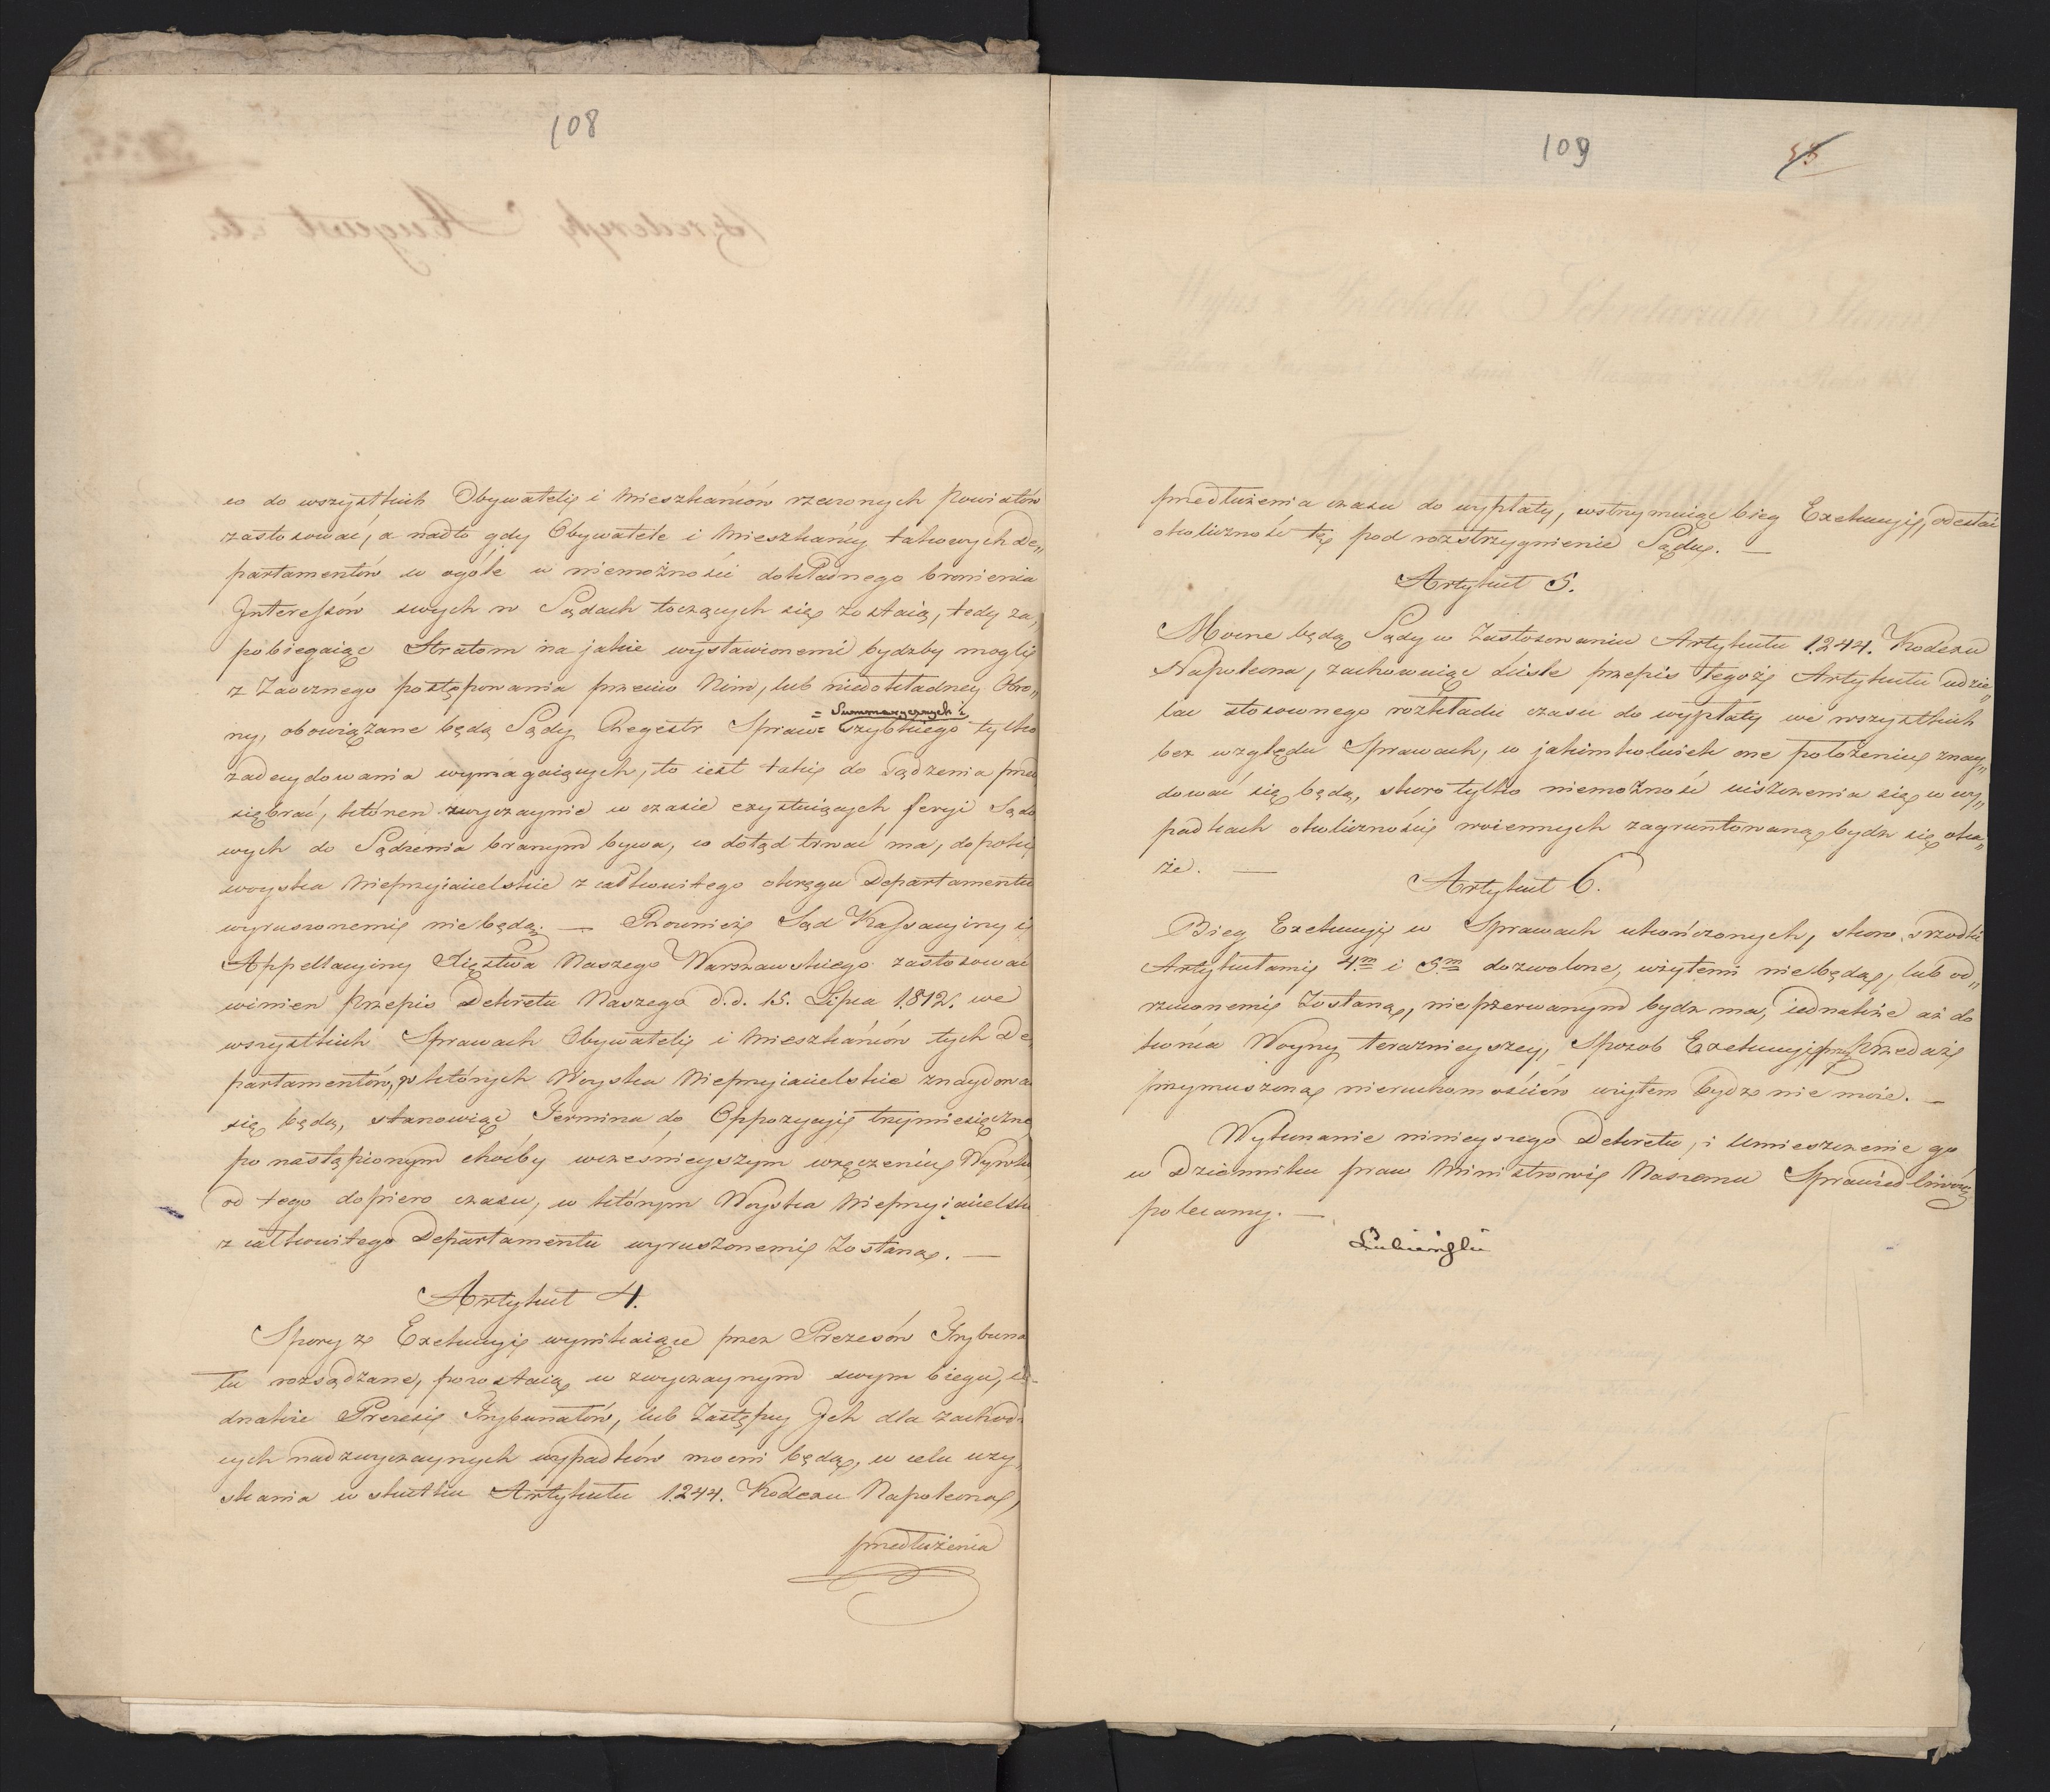 108
co do wszystkich Obywateli i Mieszkańców rzeczonych Powiatów
zastosować, a nadto gdy Obywatele i Mieszkańcy takowych De„
partamentów w ogóle w niemożności dokładnego bronienia
Interessów swych w Sądach toczących się zostaią, tedy za„
pobiegaiąc Stratom na jakie wystawionemi bydzby mogli
z Zaocznego postępowania przeciw Nim, lub niedokładney Obro„
= Summarycznych i
ny, obowiązane będą Sądy Regestr Spraw= Szybkiego tylko
zadecydowania wymagaiących, to iest takie do Sądzenia przed
się brać, który zwyczaynie w czasie exystuiących feryi Sądo
wych do Sądzenia branym bywa, co dotąd trwać ma, dopoki
woyska Nieprzyiacielskie z całkowitego okręgu Departamentu
wyruszonemi nie będą. — Rownież Sąd Kassacyiny i
Appellacyiny Xięstwa Naszego Warszawskiego zastosować
winien Przepis Dekretu Naszego d.d. 15. Lipca 1812. we
wszystkich Sprawach Obywateli i Mieszkańców tych De„
partamentów, w których Woyska Nieprzyiacielskie znaydować
się będą, stanowiąc Termina do Oppozycyi trzymiesięczne
po nastąpionym choćby wcześnieyszym wręczeniu Wyroku
od tego dopiero czasu, w którym Woyska Nieprzyiacielskie
z całkowitego Departamentu wyruszonemi Zostaną. —
Artykuł 4.
Spory z Exekucyi wynikaiące przez Prezesów Trybuna
łu rozsądzane, pozostaią w zwyczaynym swym biegu, ie-
dnakże Prezesi Trybunałów, lub Zastępcy Ich dla zachodz
cych nadzwyczaynych wypadków mocni będą, w celu uzy„
skania w skutku Artykułu 1244. Kodexu Napoleona,
przedłużenia
109
przedłużenia czasu do wypłaty, wstrzymuiąc bieg Exekucyi, odesłać
okoliczność tę pod rozstrzygnienie Sądu. —
Artykuł 5.
Mocne będą Sądy w Zastosowaniu Artykułu 1244. Kodexu
Napoleona, zachowuiąc ściśle przepis tegoż Artykułu udzie„
lać stosownego rozkładu czasu do wypłaty we wszystkich
bez względu Sprawach, w jakimkolwiek one położeniu znay„
dować się będą, skoro tylko niemożność uiszczenia się w wy„
padkach okoliczności woiennych zagruntowaną bydz się oka„
że. —
Artykuł 6.
Bieg Exekucyi w Sprawach ukończonych, skoro srzodki
Artykułami 4m i 5m dozwolone, użytemi nie będą, lub od„
rzuconemi Zostaną, nieprzerwanym bydz ma, iednakże aż do
końca Woyny teraznieyszey, Sposob Exekucyi przez Przedaż
przymuszoną nieruchomościów użytem bydz nie może. —
Wykonanie ninieyszego Dekretu, i Umieszczenie go
w Dzienniku praw Ministrowi Naszemu Sprawiedliwości
polecamy. —
Łubieński